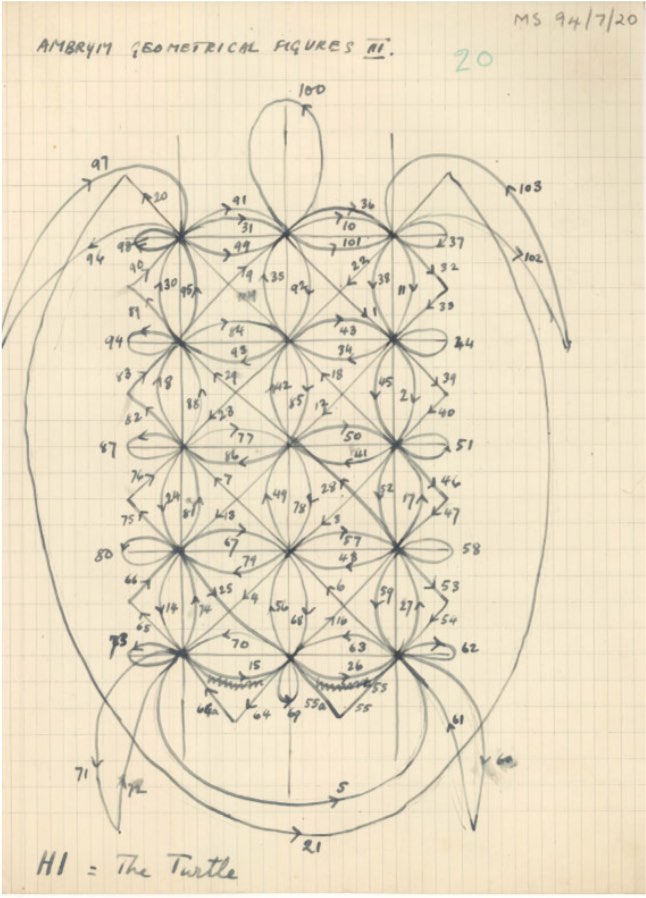 MS 94/7/20
AMBRYM GEOMETRICAL FIGURES III.
20
100
97
20
91
36
103
31
10
98
99
101
37
94
102
90
9
35
22
32
30
95
92
38
11
33
89
1
84
43
94
93
34
44
83
8
29
42
18
45
2
39
88
85
12
40
82
23
77
50
87
86
41
51
76
7
28
46
24
81
49
78
52
17
47
75
13
3
67
57
80
79
48
58
66
25
4
6
53
14
74
56
68
59
27
54
65
16
73
70
63
62
15
26
64
69
55a
55
61
60
71
72
5
21
H1 = The Turtle